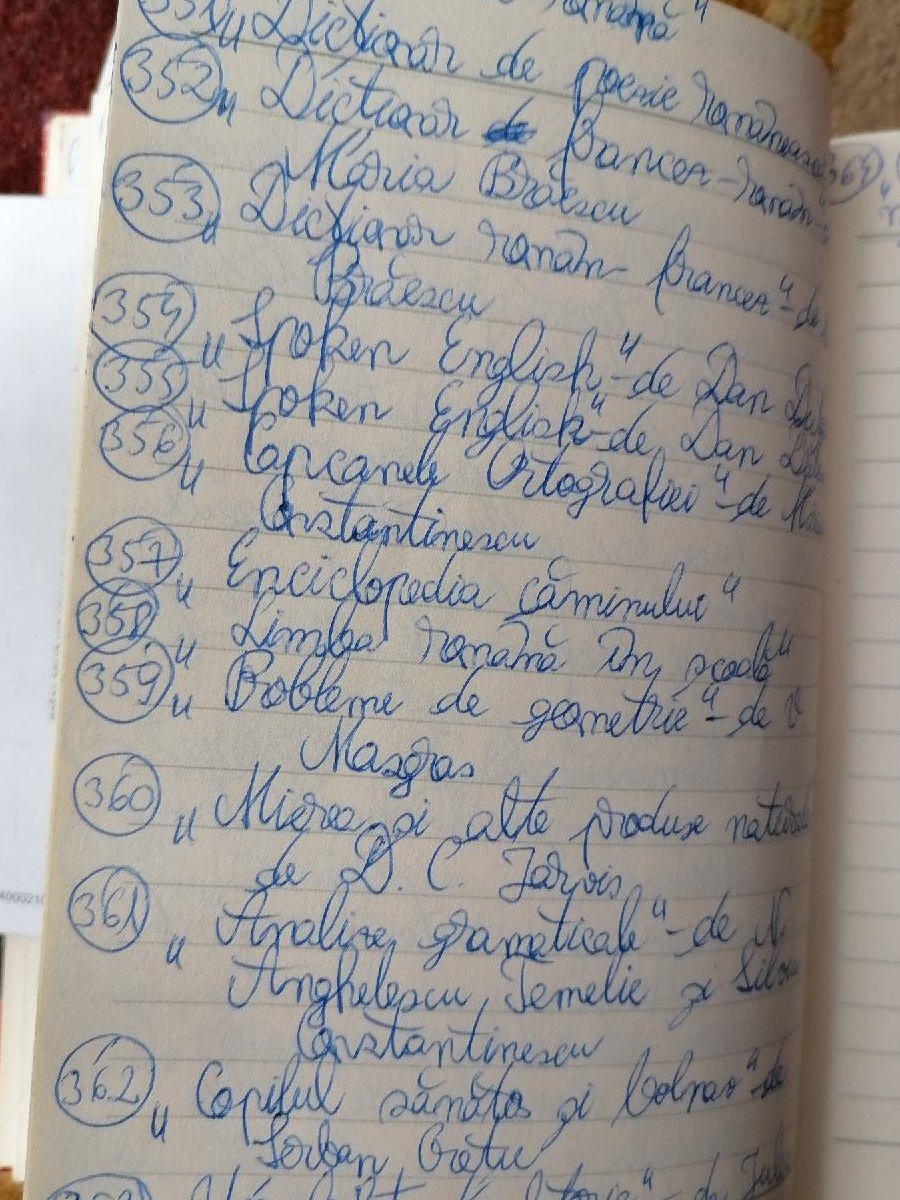 română"
351 „Dicționar de poezie românească
352 „Dicționar francez-român
Maria Brăescu
353 „Dicționar român-francez"-de
Brăescu
354 „Spoken English"-de Dan
355 „Spoken English"-de Dan
356 „Capcanele Ortografiei"-de
Constantinescu
357 „Enciclopedia căminului"
358 „Limba română în școală"
359 „Probleme de geometrie"-de V
Masgras
360 „Mierea și alte produse naturale
de D. C. Jarvis
361 „Analize gramaticale"-de N.
Anghelescu, Temelie și Silviu
Constantinescu
362 „Copilul sănătos și bolnav"-de
Șerban Crețu
de Jules
364